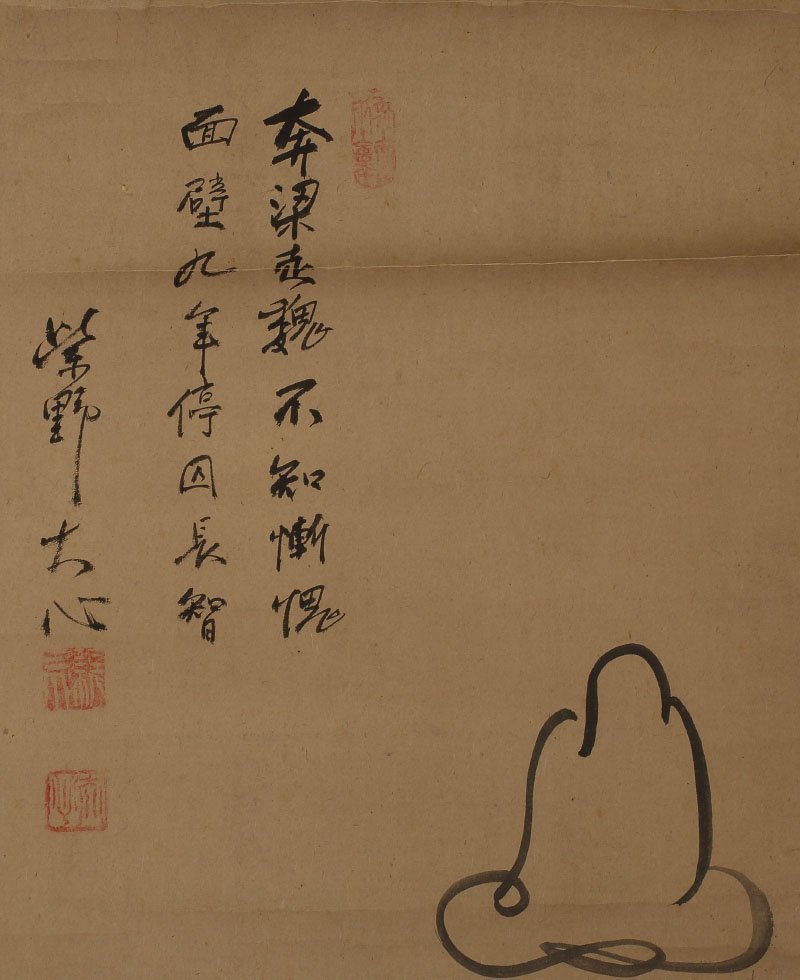 奔梁走魏不知慚愧
面壁九年停囚長智
紫野大心